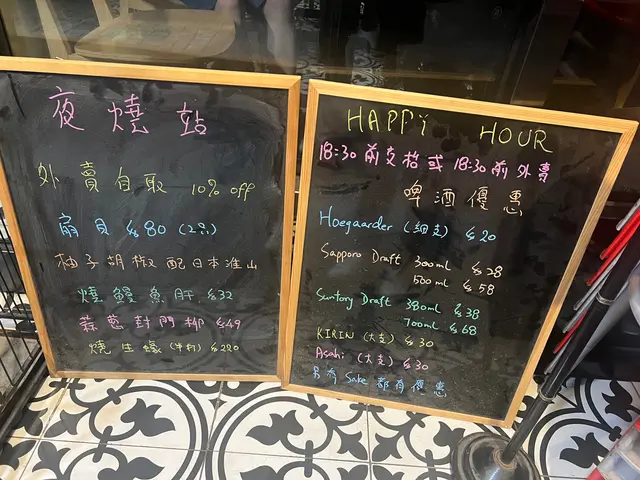 夜燒站
外賣自取 10% off
扇貝 $80 (2只)
柚子胡椒配日本淮山
燒鰻魚肝 $32
蒜蔥封門柳 $49
燒生蠔 (半打) $220
HAPPY HOUR
18:30前交格或18:30前外賣
啤酒優惠
Hoegaarder (細支) $20
Sapporo Draft 300ml $28
500ml $58
Suntory Draft 380ml $38
700ml $68
KIRIN (大支) $30
Asahi (大支) $30
另有 Sake 都有優惠